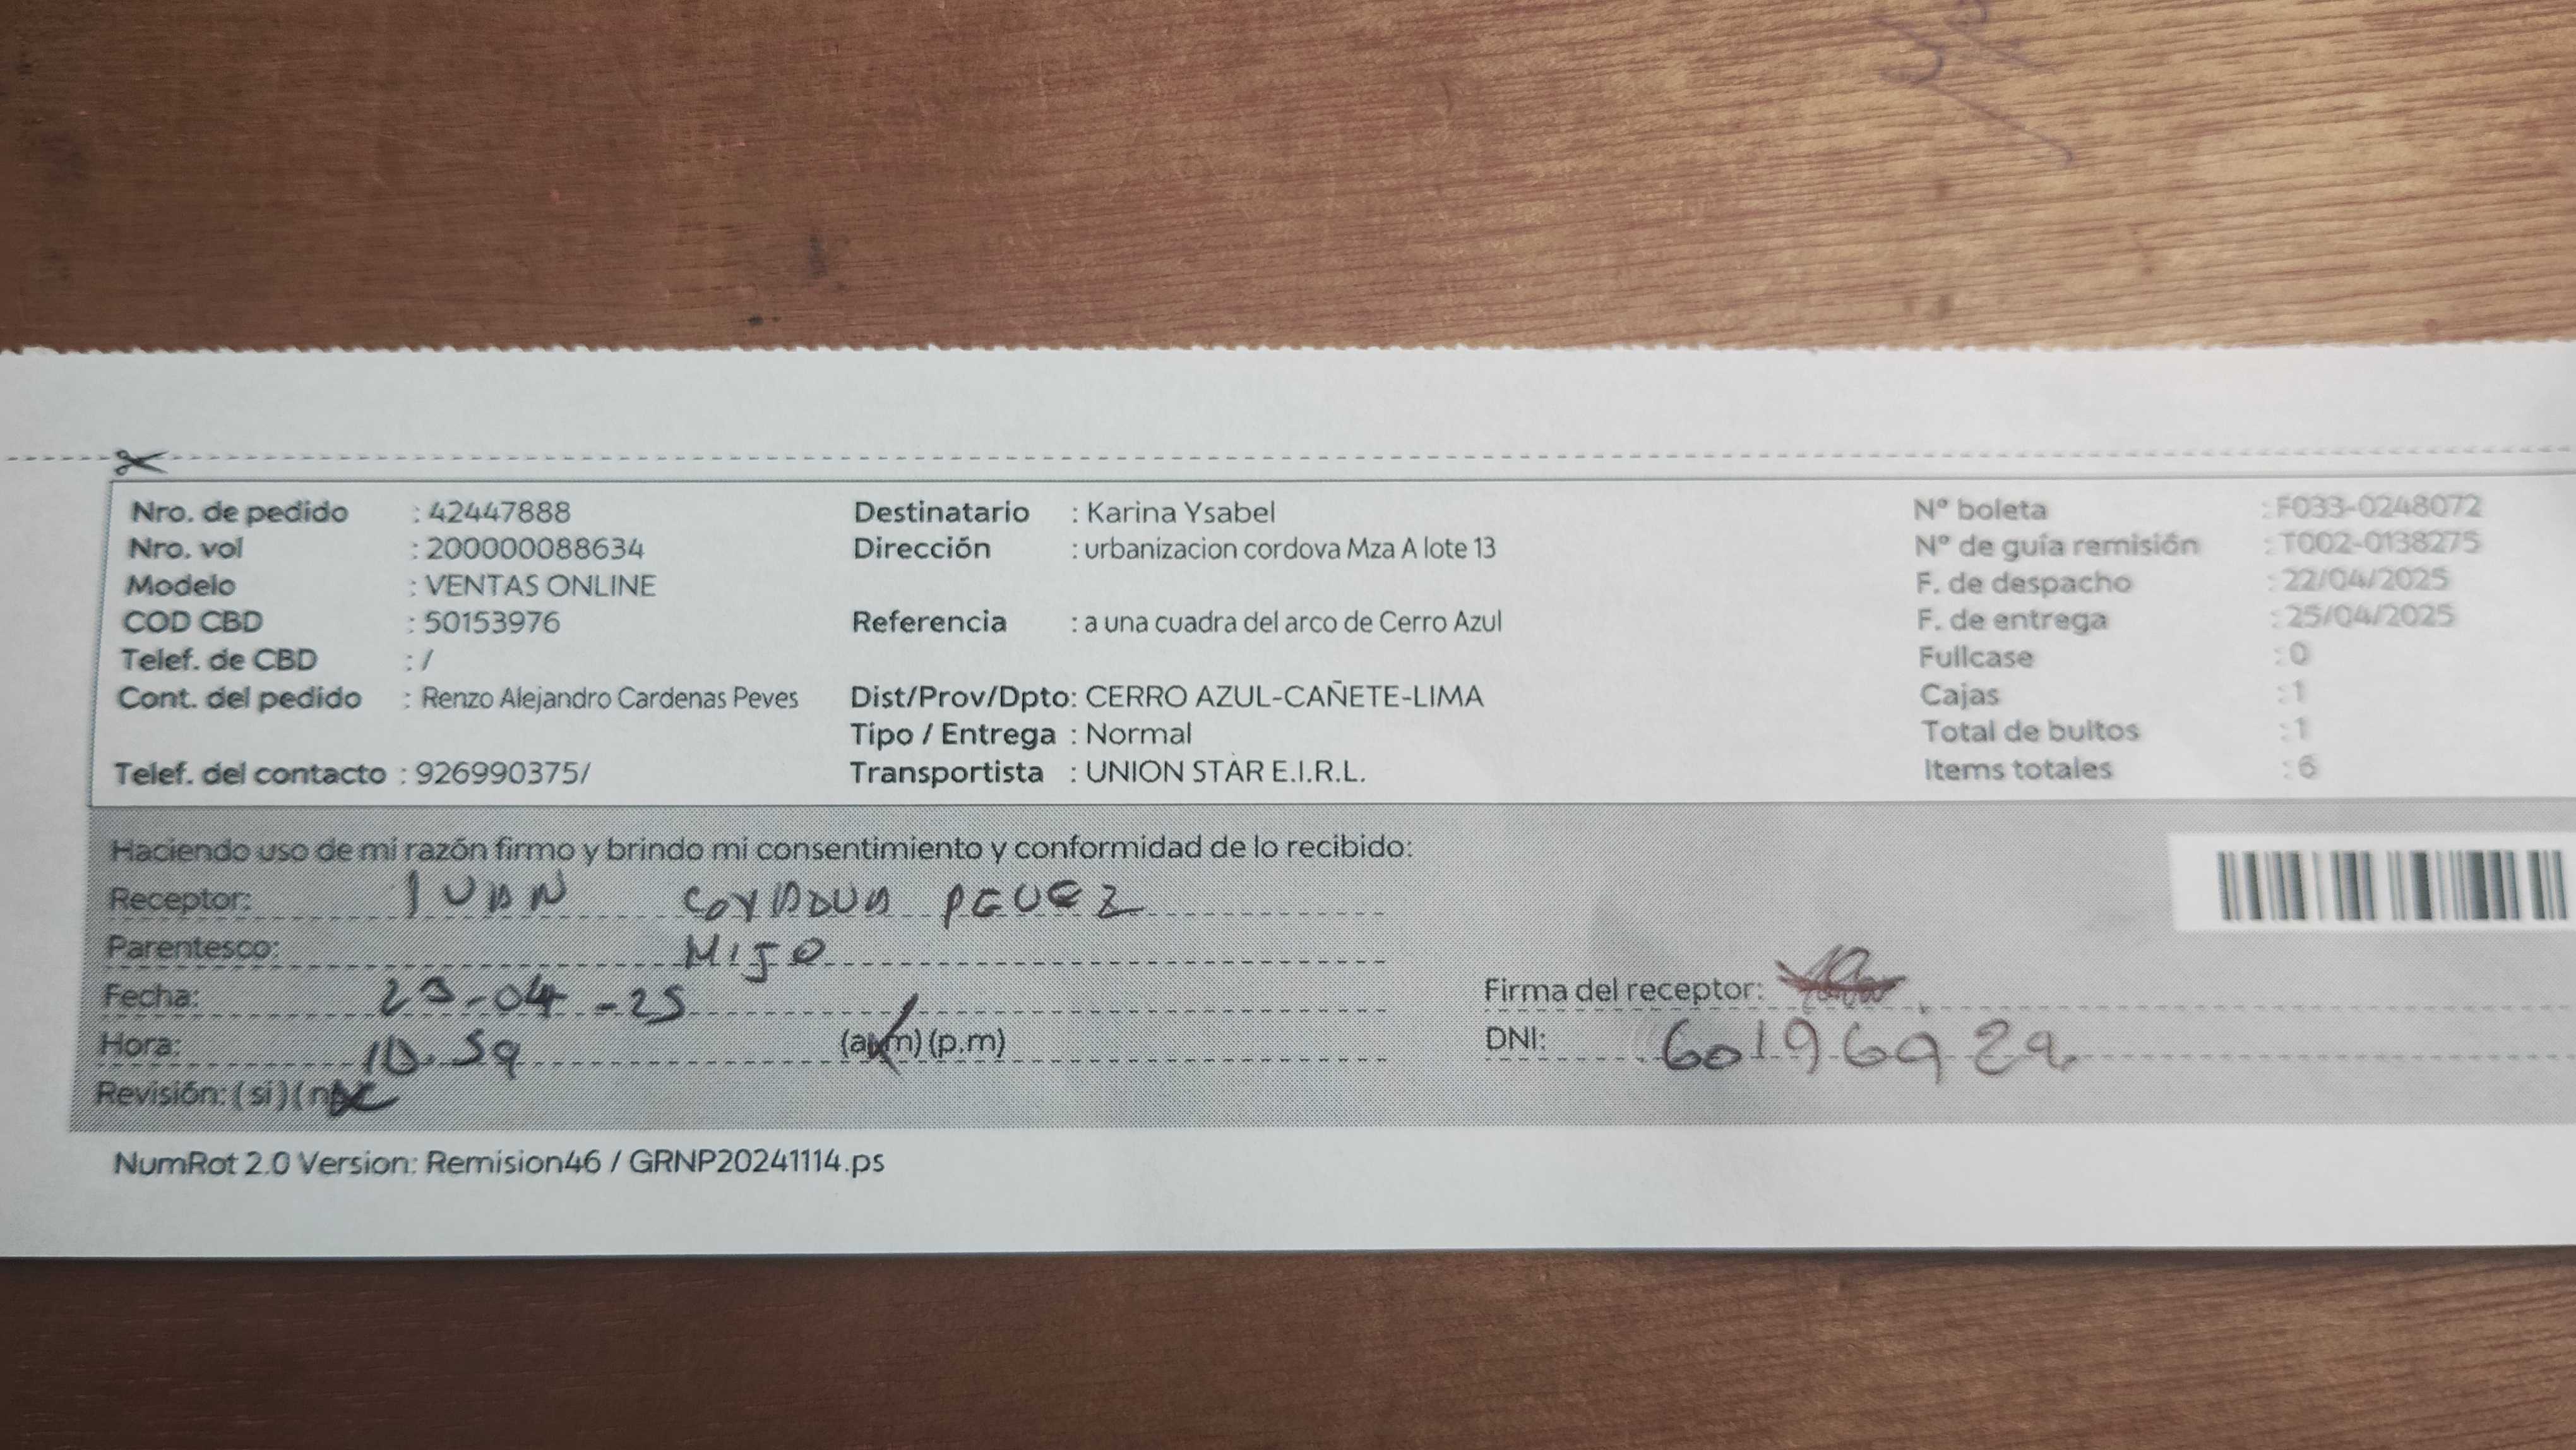 Nro. de pedido : 42447888
Nro. vol : 200000088634
Modelo : VENTAS ONLINE
COD CBD : 50153976
Telef. de CBD : /
Cont. del pedido : Renzo Alejandro Cardenas Peves
Telef. del contacto : 926990375/
Destinatario : Karina Ysabel
Dirección : urbanizacion cordova Mza A lote 13
Referencia : a una cuadra del arco de Cerro Azul
Dist/Prov/Dpto: CERRO AZUL-CAÑETE-LIMA
Tipo / Entrega : Normal
Transportista : UNION STAR E.I.R.L.
Nº boleta : F033-0248072
Nº de guía remisión : T002-0138275
F. de despacho : 22/04/2025
F. de entrega : 25/04/2025
Fullcase : 0
Cajas : 1
Total de bultos : 1
Items totales : 6
Haciendo uso de mi razón firmo y brindo mi consentimiento y conformidad de lo recibido:
Receptor: IVAN
Parentesco: HIJO
Fecha: 23-04-25
Hora: 10.59 (a.m) (p.m)
Revisión: (si) (no)
Firma del receptor:
DNI:
NumRot 2.0 Version: Remision46 / GRNP20241114.ps